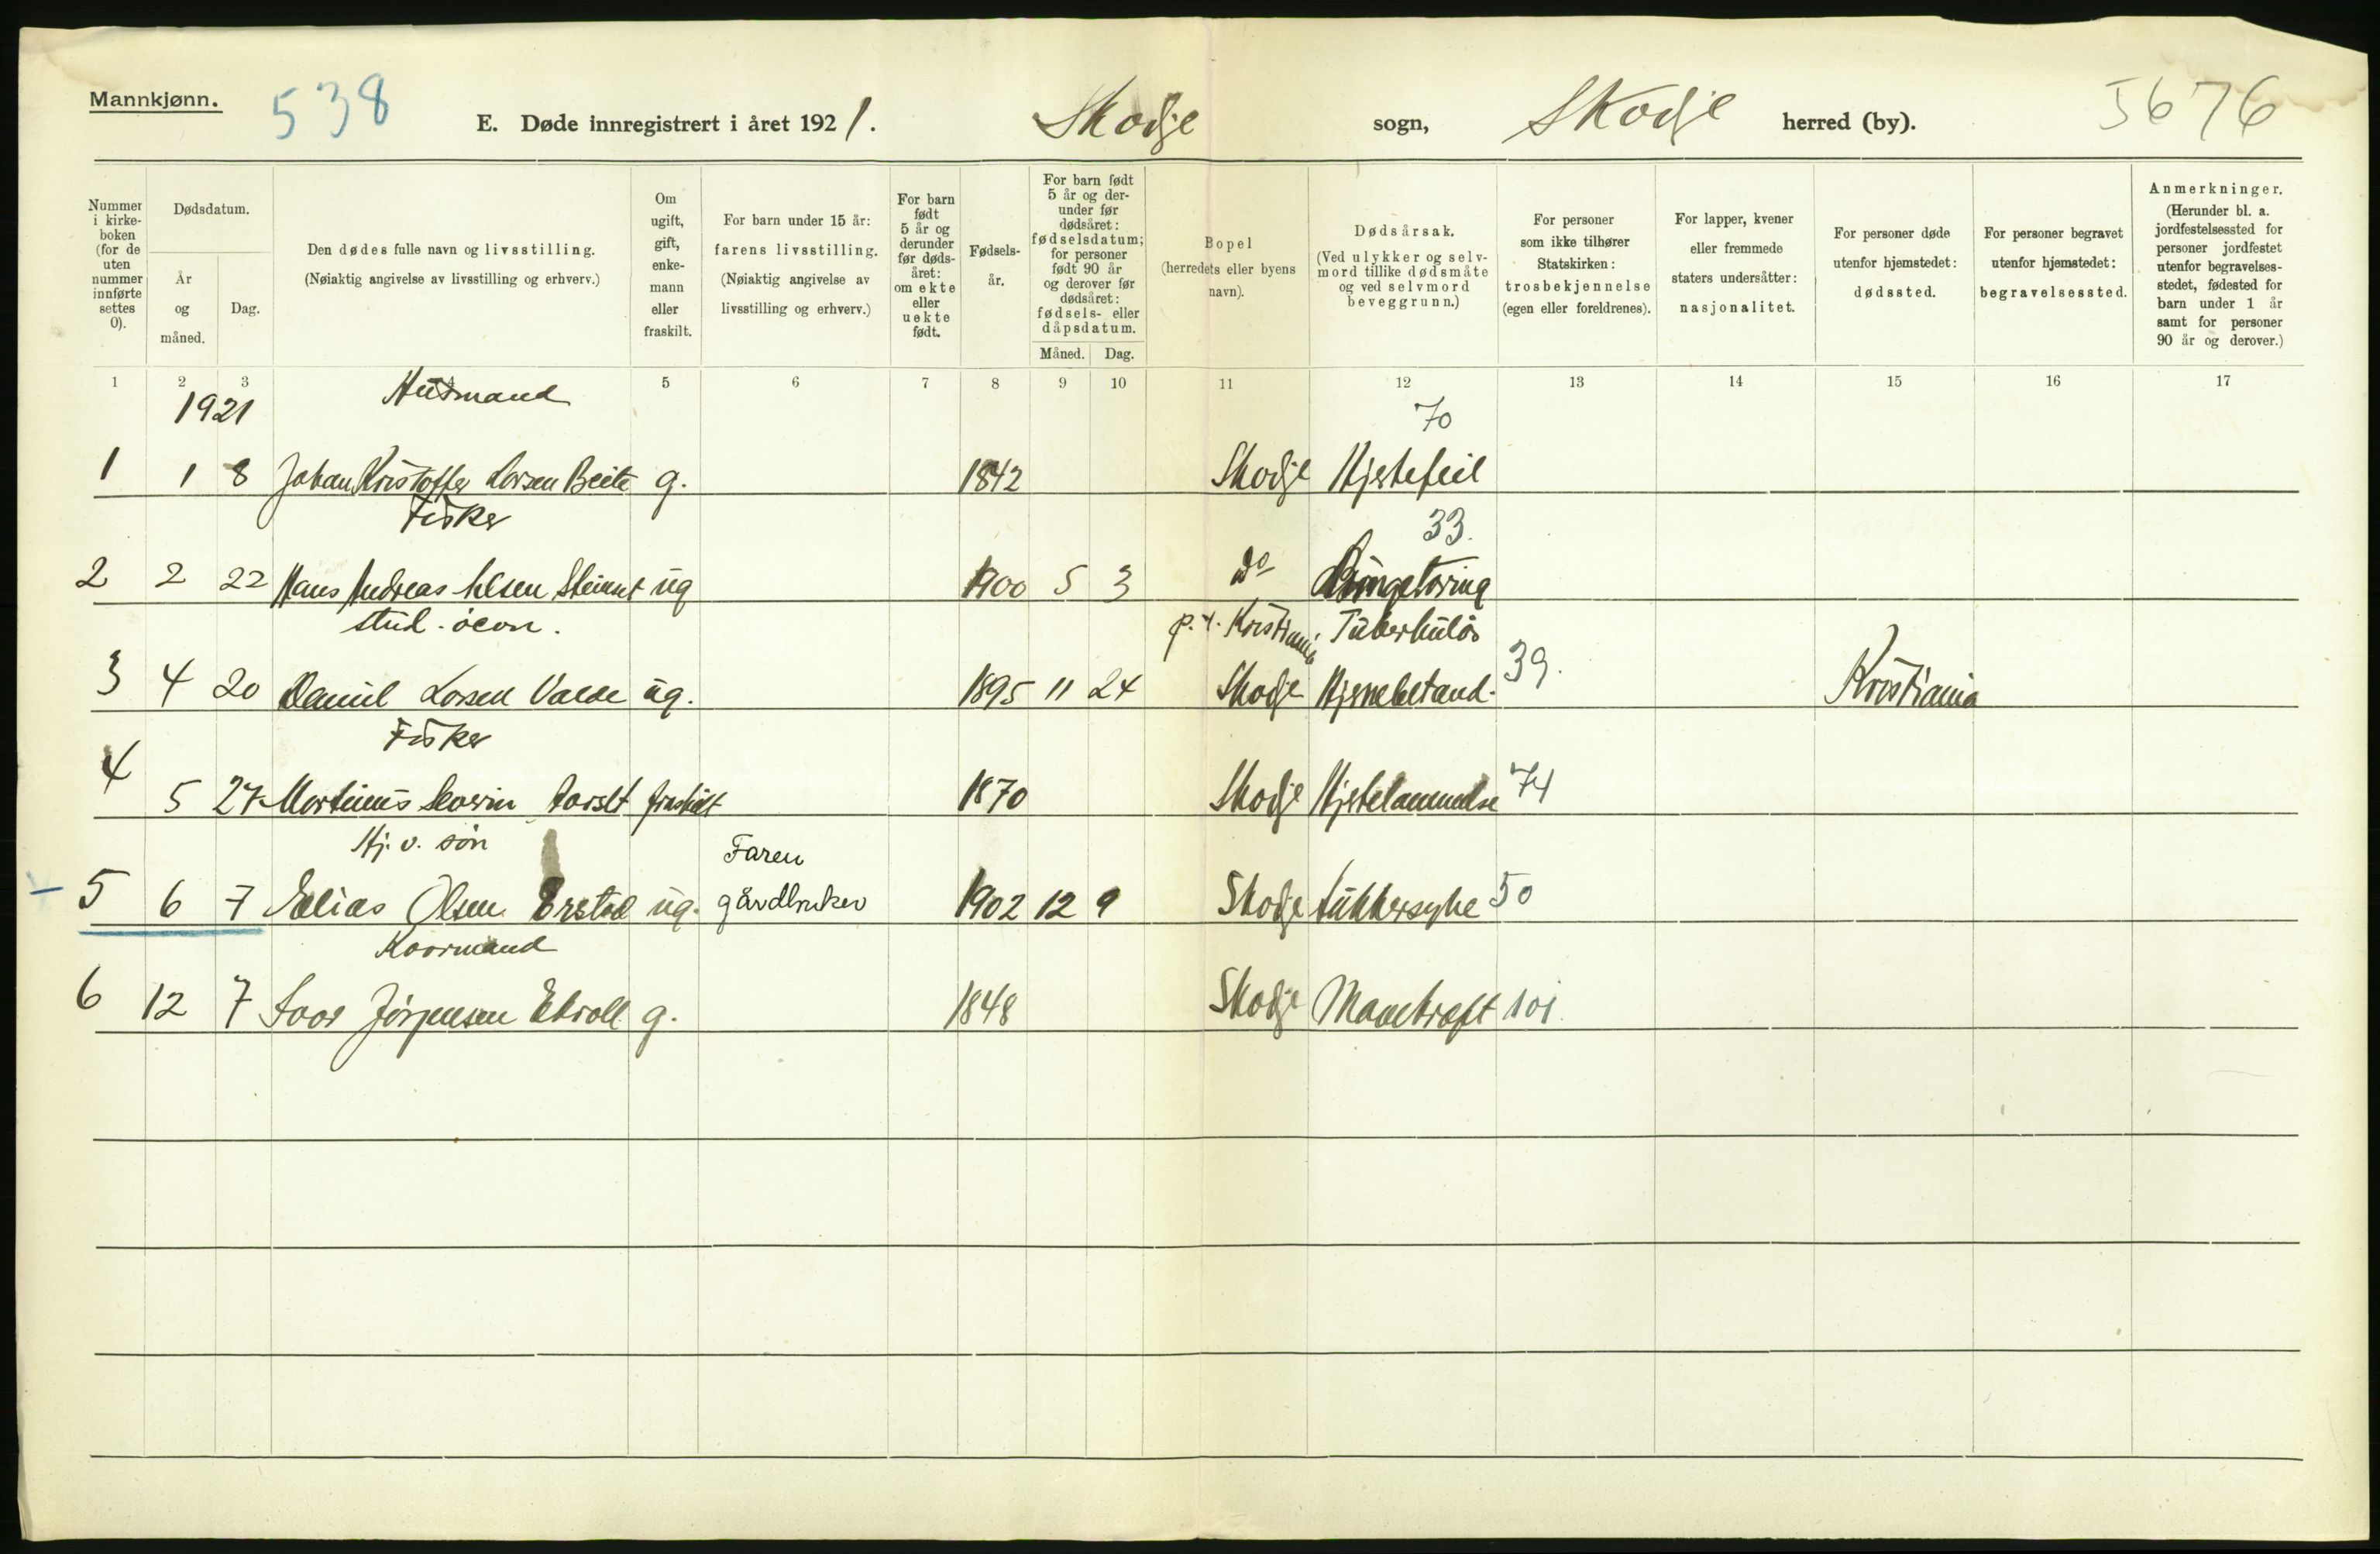 Mannkjønn.
538
E. Døde innregistrert i året 1921.
Skodje
sogn,
Skodje
herred (by).
5676
Nummer i kirke-boken (for de uten nummer innførte settes 0).
Dødsdatum.
År og måned.
Dag.
Den dødes fulle navn og livsstilling.
(Nøiaktig angivelse av livsstilling og erhverv.)
Om ugift, gift, enke-mann eller fraskilt.
For barn under 15 år:
farens livsstilling.
(Nøiaktig angivelse av livsstilling og erhverv.)
For barn født 5 år og derunder før døds-året: om ekte eller uekte født.
Fødsels-år.
For barn født 5 år og der-under før dødsåret: fødselsdatum; for personer født 90 år og derover før dødsåret: fødsels- eller dåpsdatum.
Måned.
Dag.
Bopel
(herredets eller byens navn).
Dødsårsak.
(Ved ulykker og selv-mord tillike dødsmåte og ved selvmord beveggrunn.)
For personer som ikke tilhører Statskirken:
trosbekjennelse
(egen eller foreldrenes).
For lapper, kvener eller fremmede staters undersåtter:
nasjonalitet.
For personer døde utenfor hjemstedet:
dødssted.
For personer begravet utenfor hjemstedet:
begravelsessted.
Anmerkninger.
(Herunder bl. a. jordfestelsessted for personer jordfestet utenfor begravelses-stedet, fødested for barn under 1 år samt for personer 90 år og derover.)
1 2 3 5 6 7 8 9 10 11 12 13 14 15 16 17
1921
Husmand
70
1 1 8 Johan Kristoffer Larsen Beite g. 1842 Skodje Hjertefeil
Fisker
33.
2 2 22 Hans Andreas Steinset ug 1900 5 3 do
stud. øcon.
p.t. Kristiania
Tuberkuløs
3 4 20 Daniel Larsen Valde ug. 1895 11 24 Skodje Hjernebetænd. 39. Kristiania
Fisker
4 5 27 Martinus Severin fraskilt 1870 Skodje Hjertelammelse 74
Hj. v. søn
Faren
5 6 7 Elias Olsen Ørstad ug. gårdbruker 1902 12 9 Skodje Sukkersyke 50
Kaarmand
6 12 7 Ivar Jørgensen Ekroll g. 1848 Skodje Mavekræft 101.